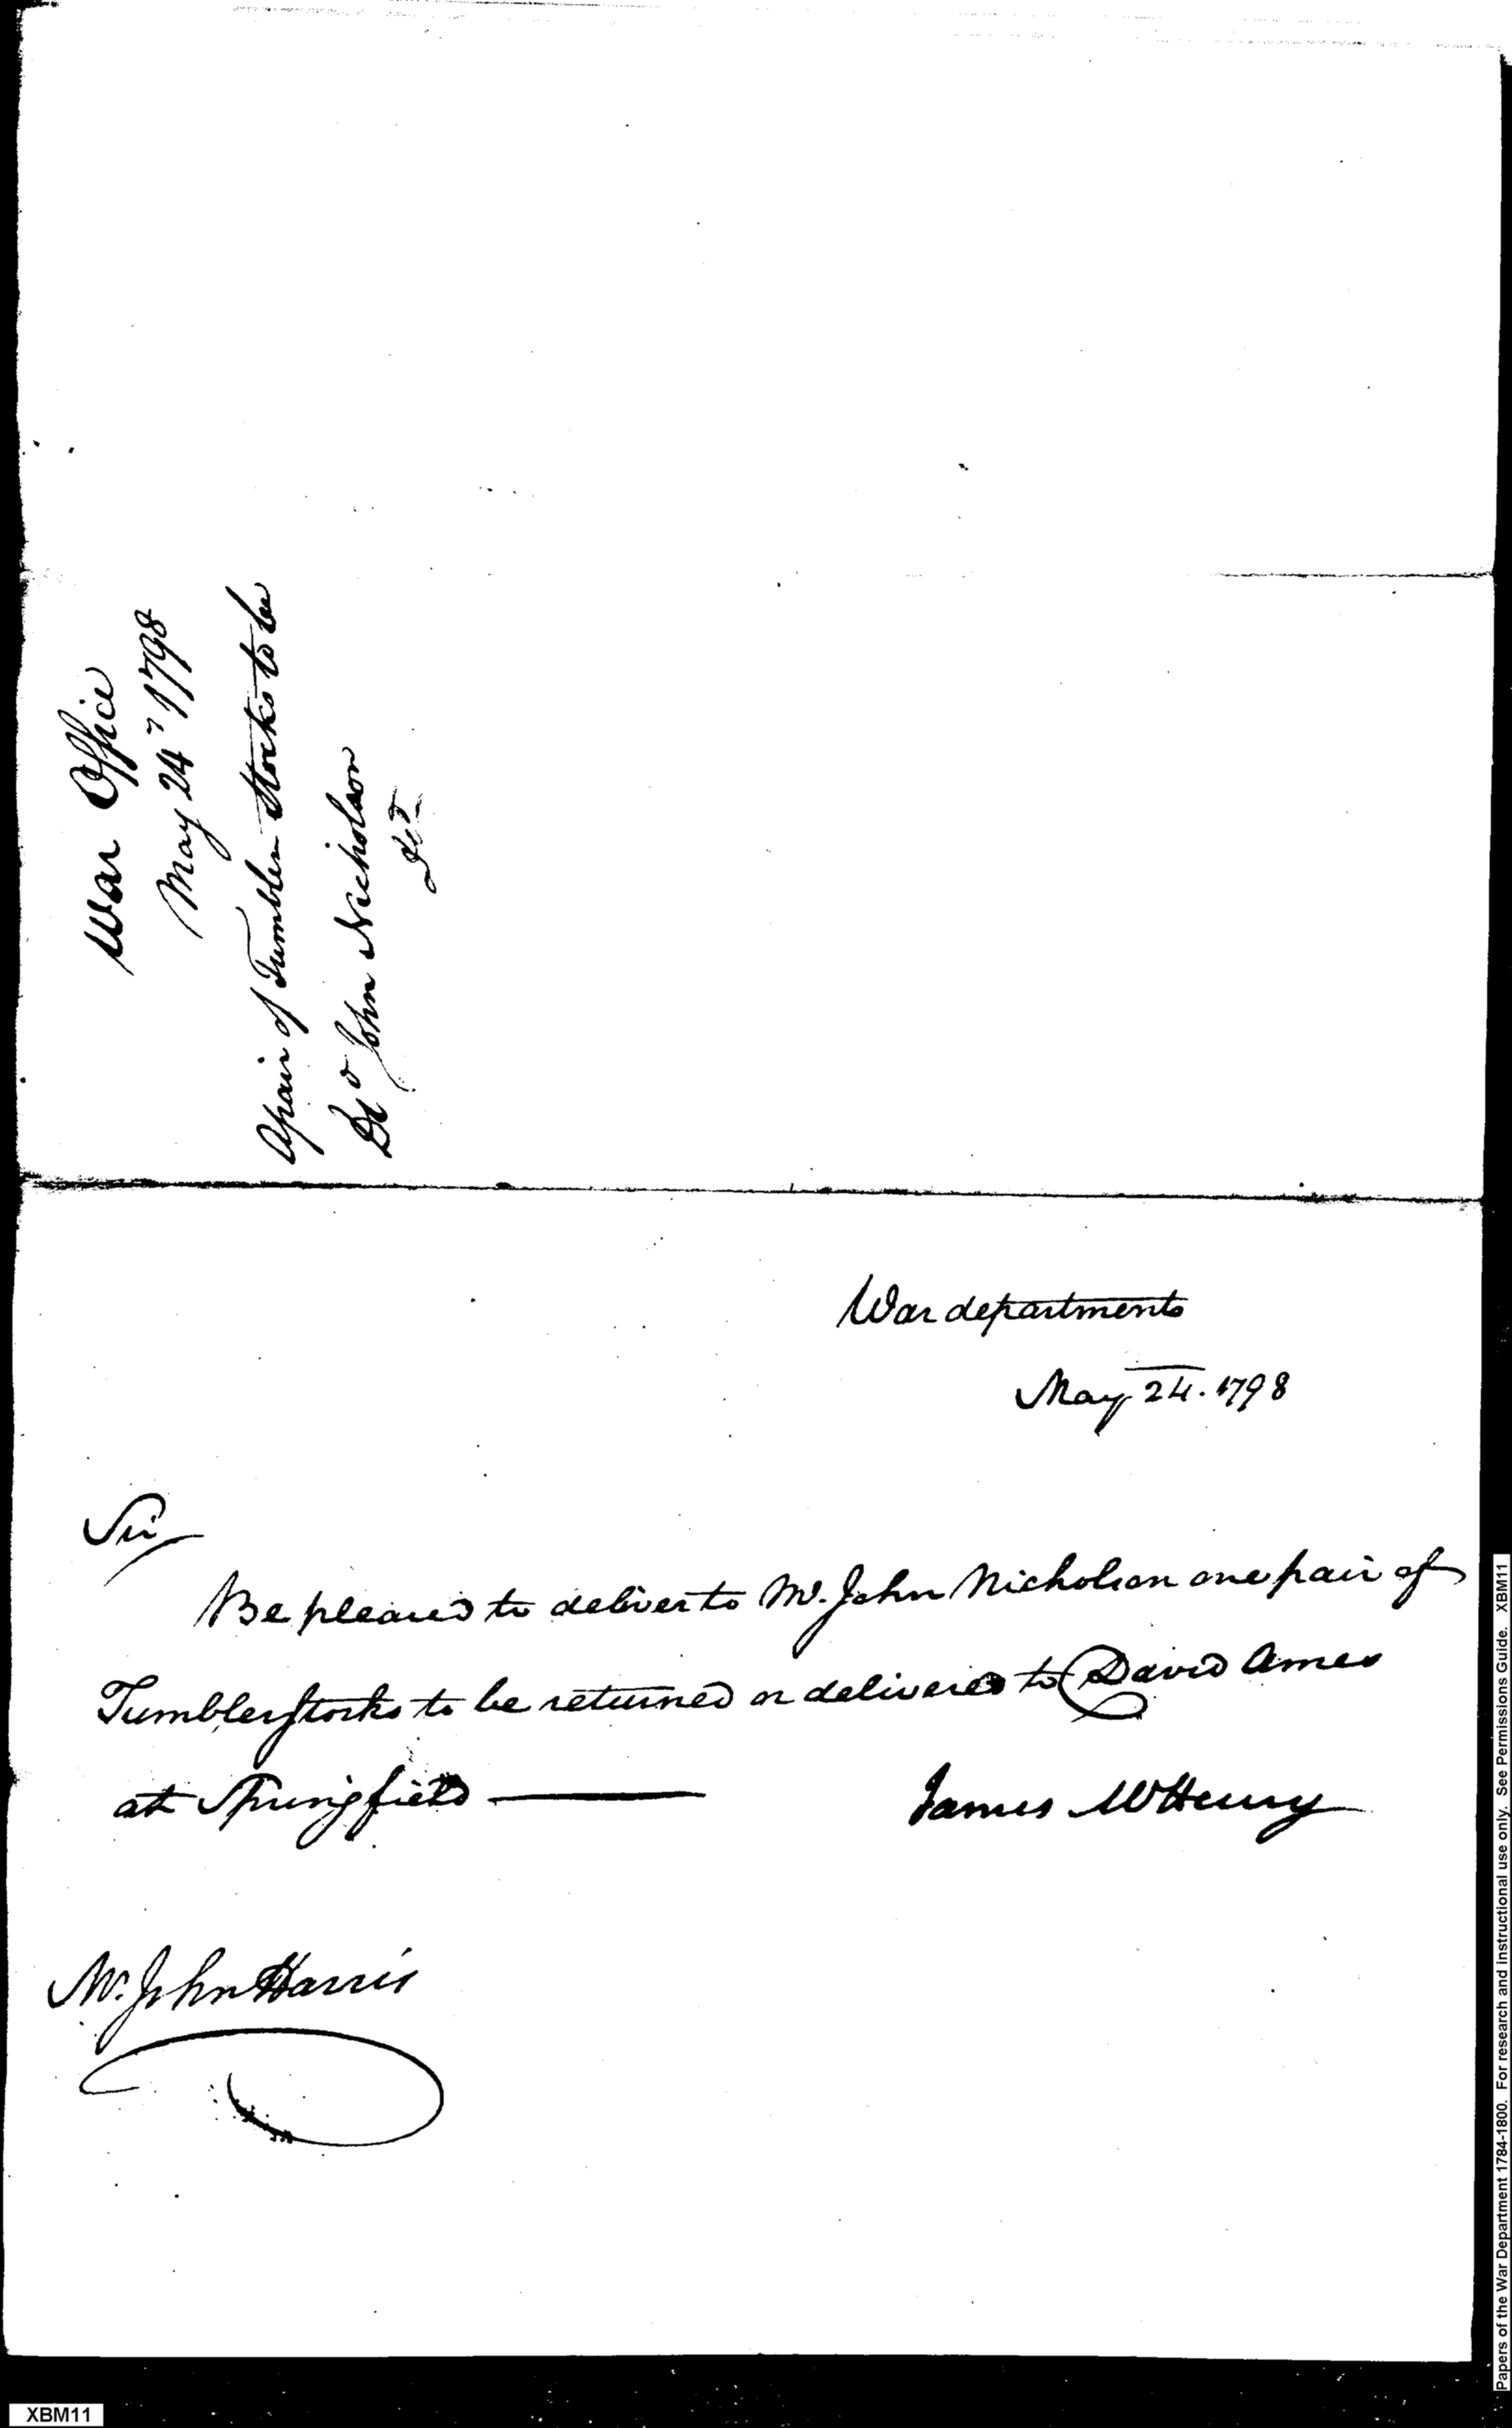 War Office
May 24th 1798
Apair of Tumbler Stocks to be
Dd John Nicholson
War department
May 24. 1798
Sir
Be pleased to deliver to Mr. John Nicholson one pair of
Tumbler stocks to be returned or delivered to David Ames
at Springfield
James McHenry
Mr. John Harris
Papers of the War Department 1784-1800. For research and instructional use only. See Permissions Guide. XBM11
XBM11